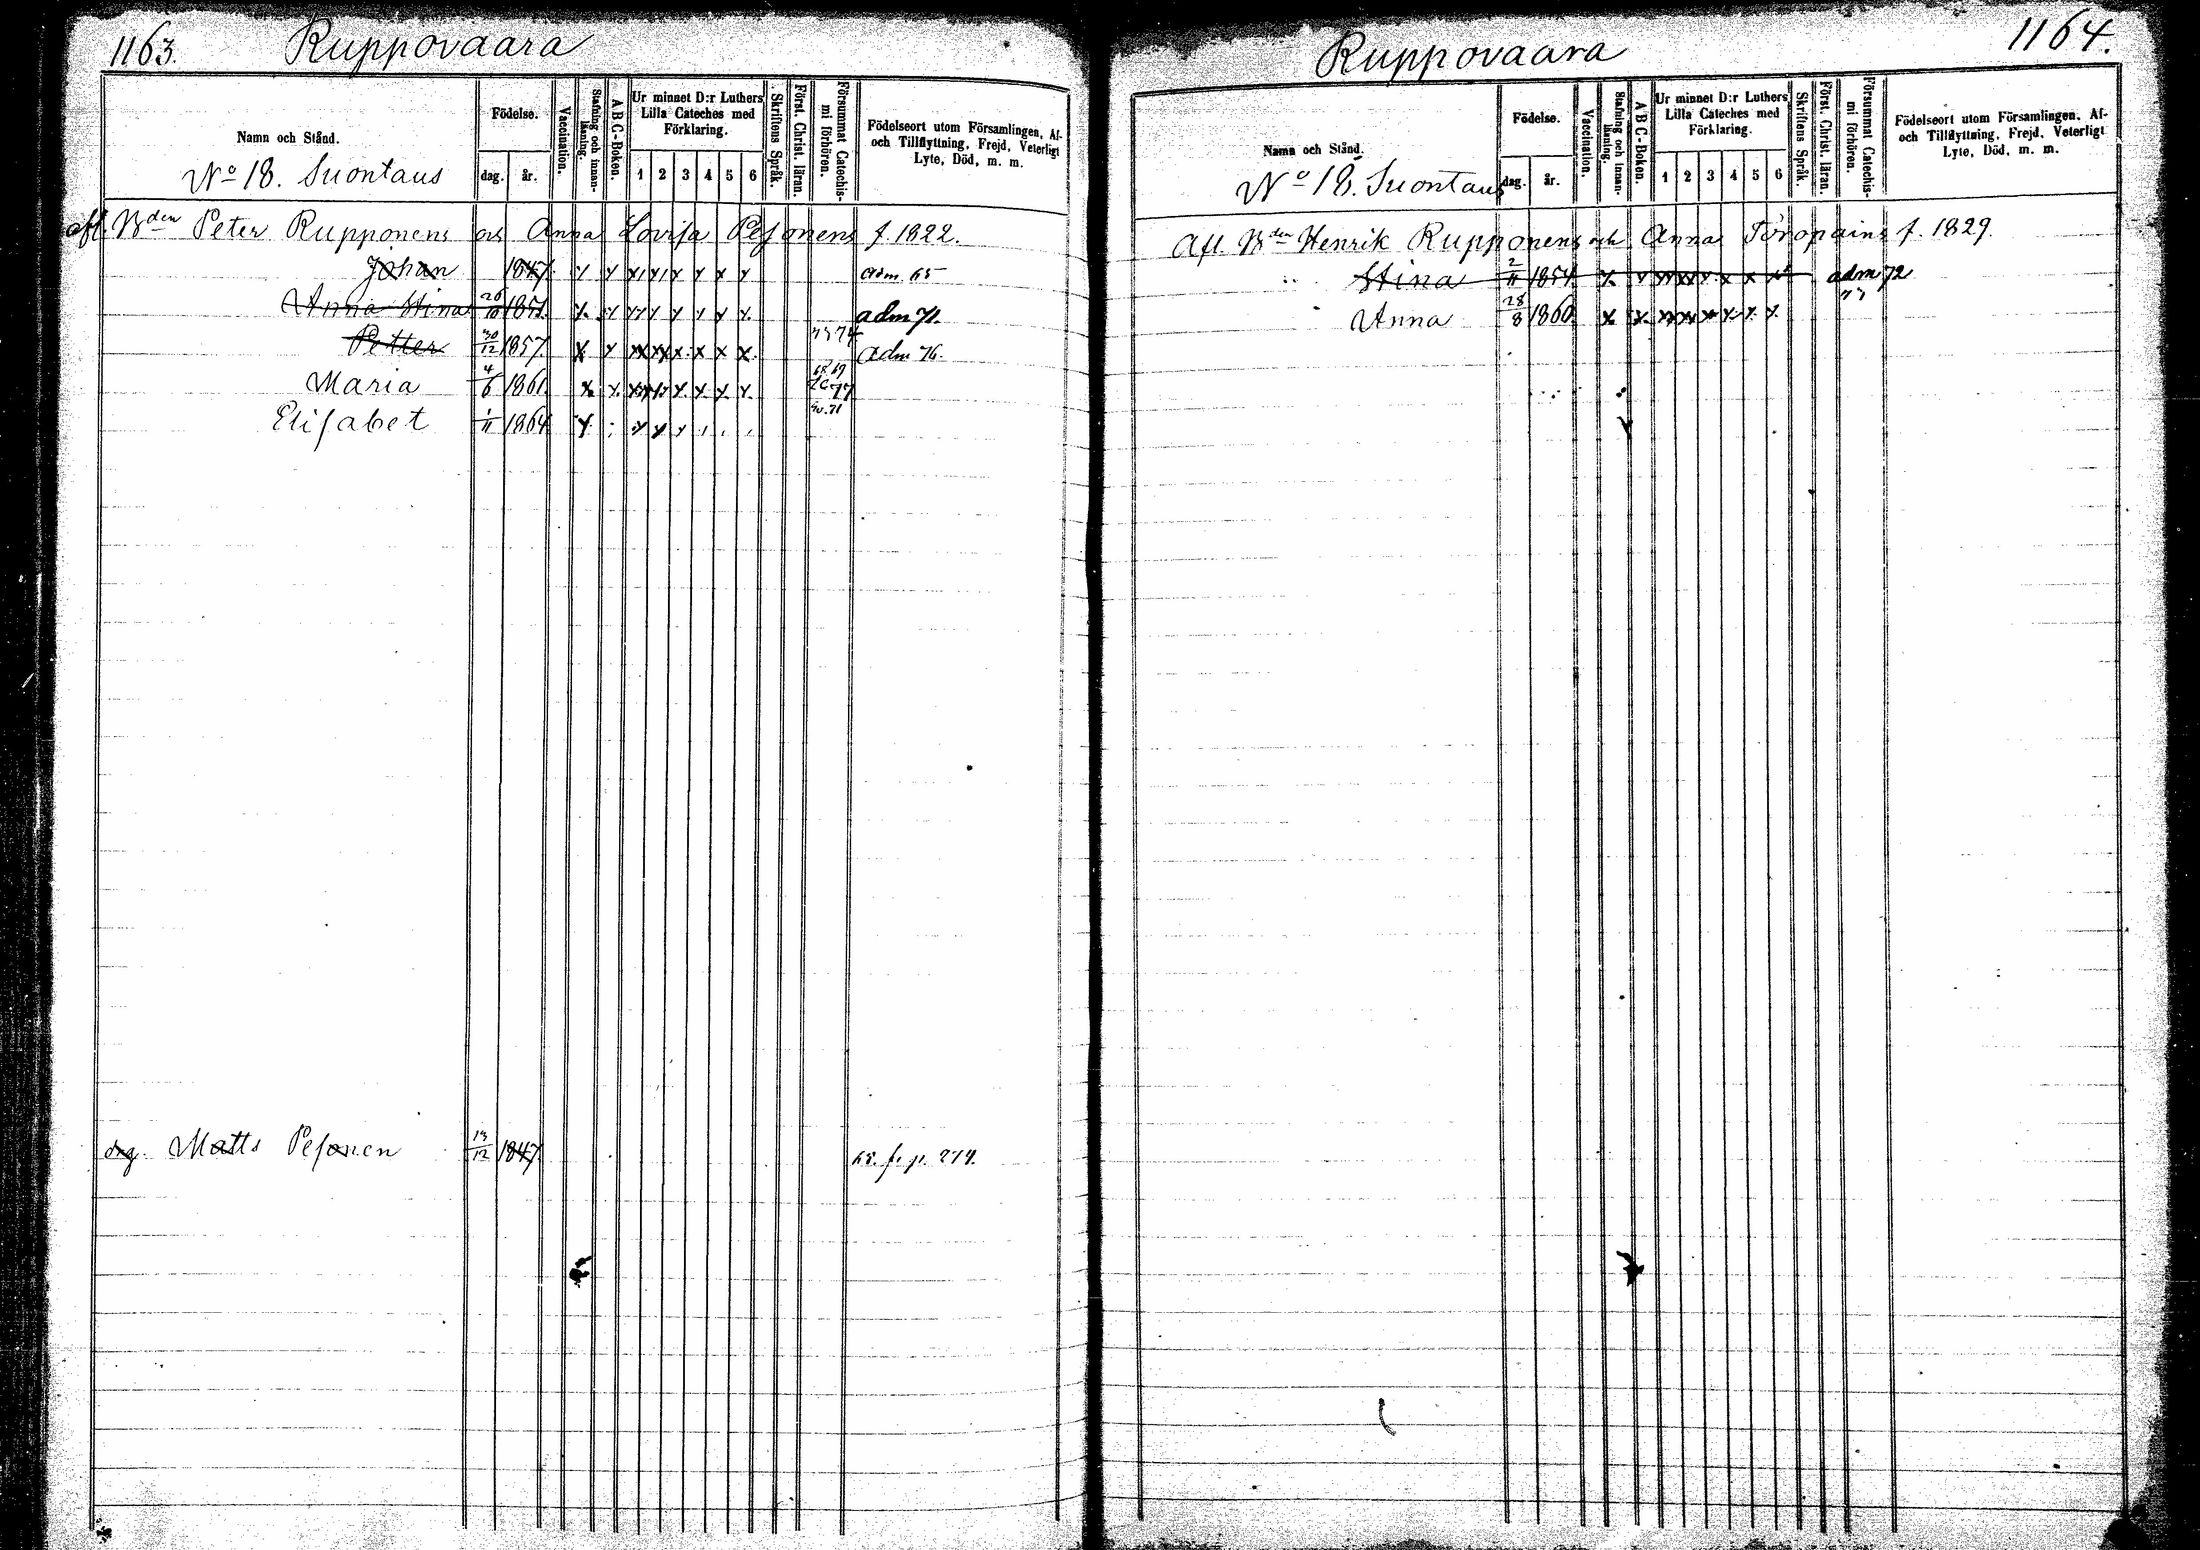 1163. Ruppovaara
Namn och Stånd.
Födelse.
dag. år.
Vaccination.
Stafning och innan-läsning.
A B C-Boken.
Ur minnet D:r Luthers
Lilla Cateches med
Förklaring.
1 2 3 4 5 6
Skriftens Språk.
Först. Christ. läran.
Försummat Catechis-
mi förhören.
Födelseort utom Församlingen, Af-
och Tillflyttning, Frejd, Veterligt
Lyte, Död, m. m.
No 18. Suontaus
afl. Bden Peter Rupponens och Anna Lovisa Pesonens f. 1822.
Johan 1847. adm. 65
Anna Stina 26/10 1851. adm 71.
Petter 30/12 1857. 73 74 adm 76.
Maria 4/6 1861. 68. 69 77
Elisabet 1/11 1864
drg. Matts Pesonen 13/12 1847. 68. fr. p. 274.
Ruppovaara 1164.
Namn och Stånd.
Födelse.
dag. år.
Vaccination.
Stafning och innan-läsning.
A B C-Boken.
Ur minnet D:r Luthers
Lilla Cateches med
Förklaring.
1 2 3 4 5 6
Skriftens Språk.
Först. Christ. läran.
Försummat Catechis-
mi förhören.
Födelseort utom Församlingen, Af-
och Tillflyttning, Frejd, Veterligt
Lyte, Död, m. m.
No 18. Suontaus
Afl. Bden Henrik Rupponens och Anna Toropains f. 1829.
Stina 2/11 1854. adm 72
Anna 28/8 1860. 77